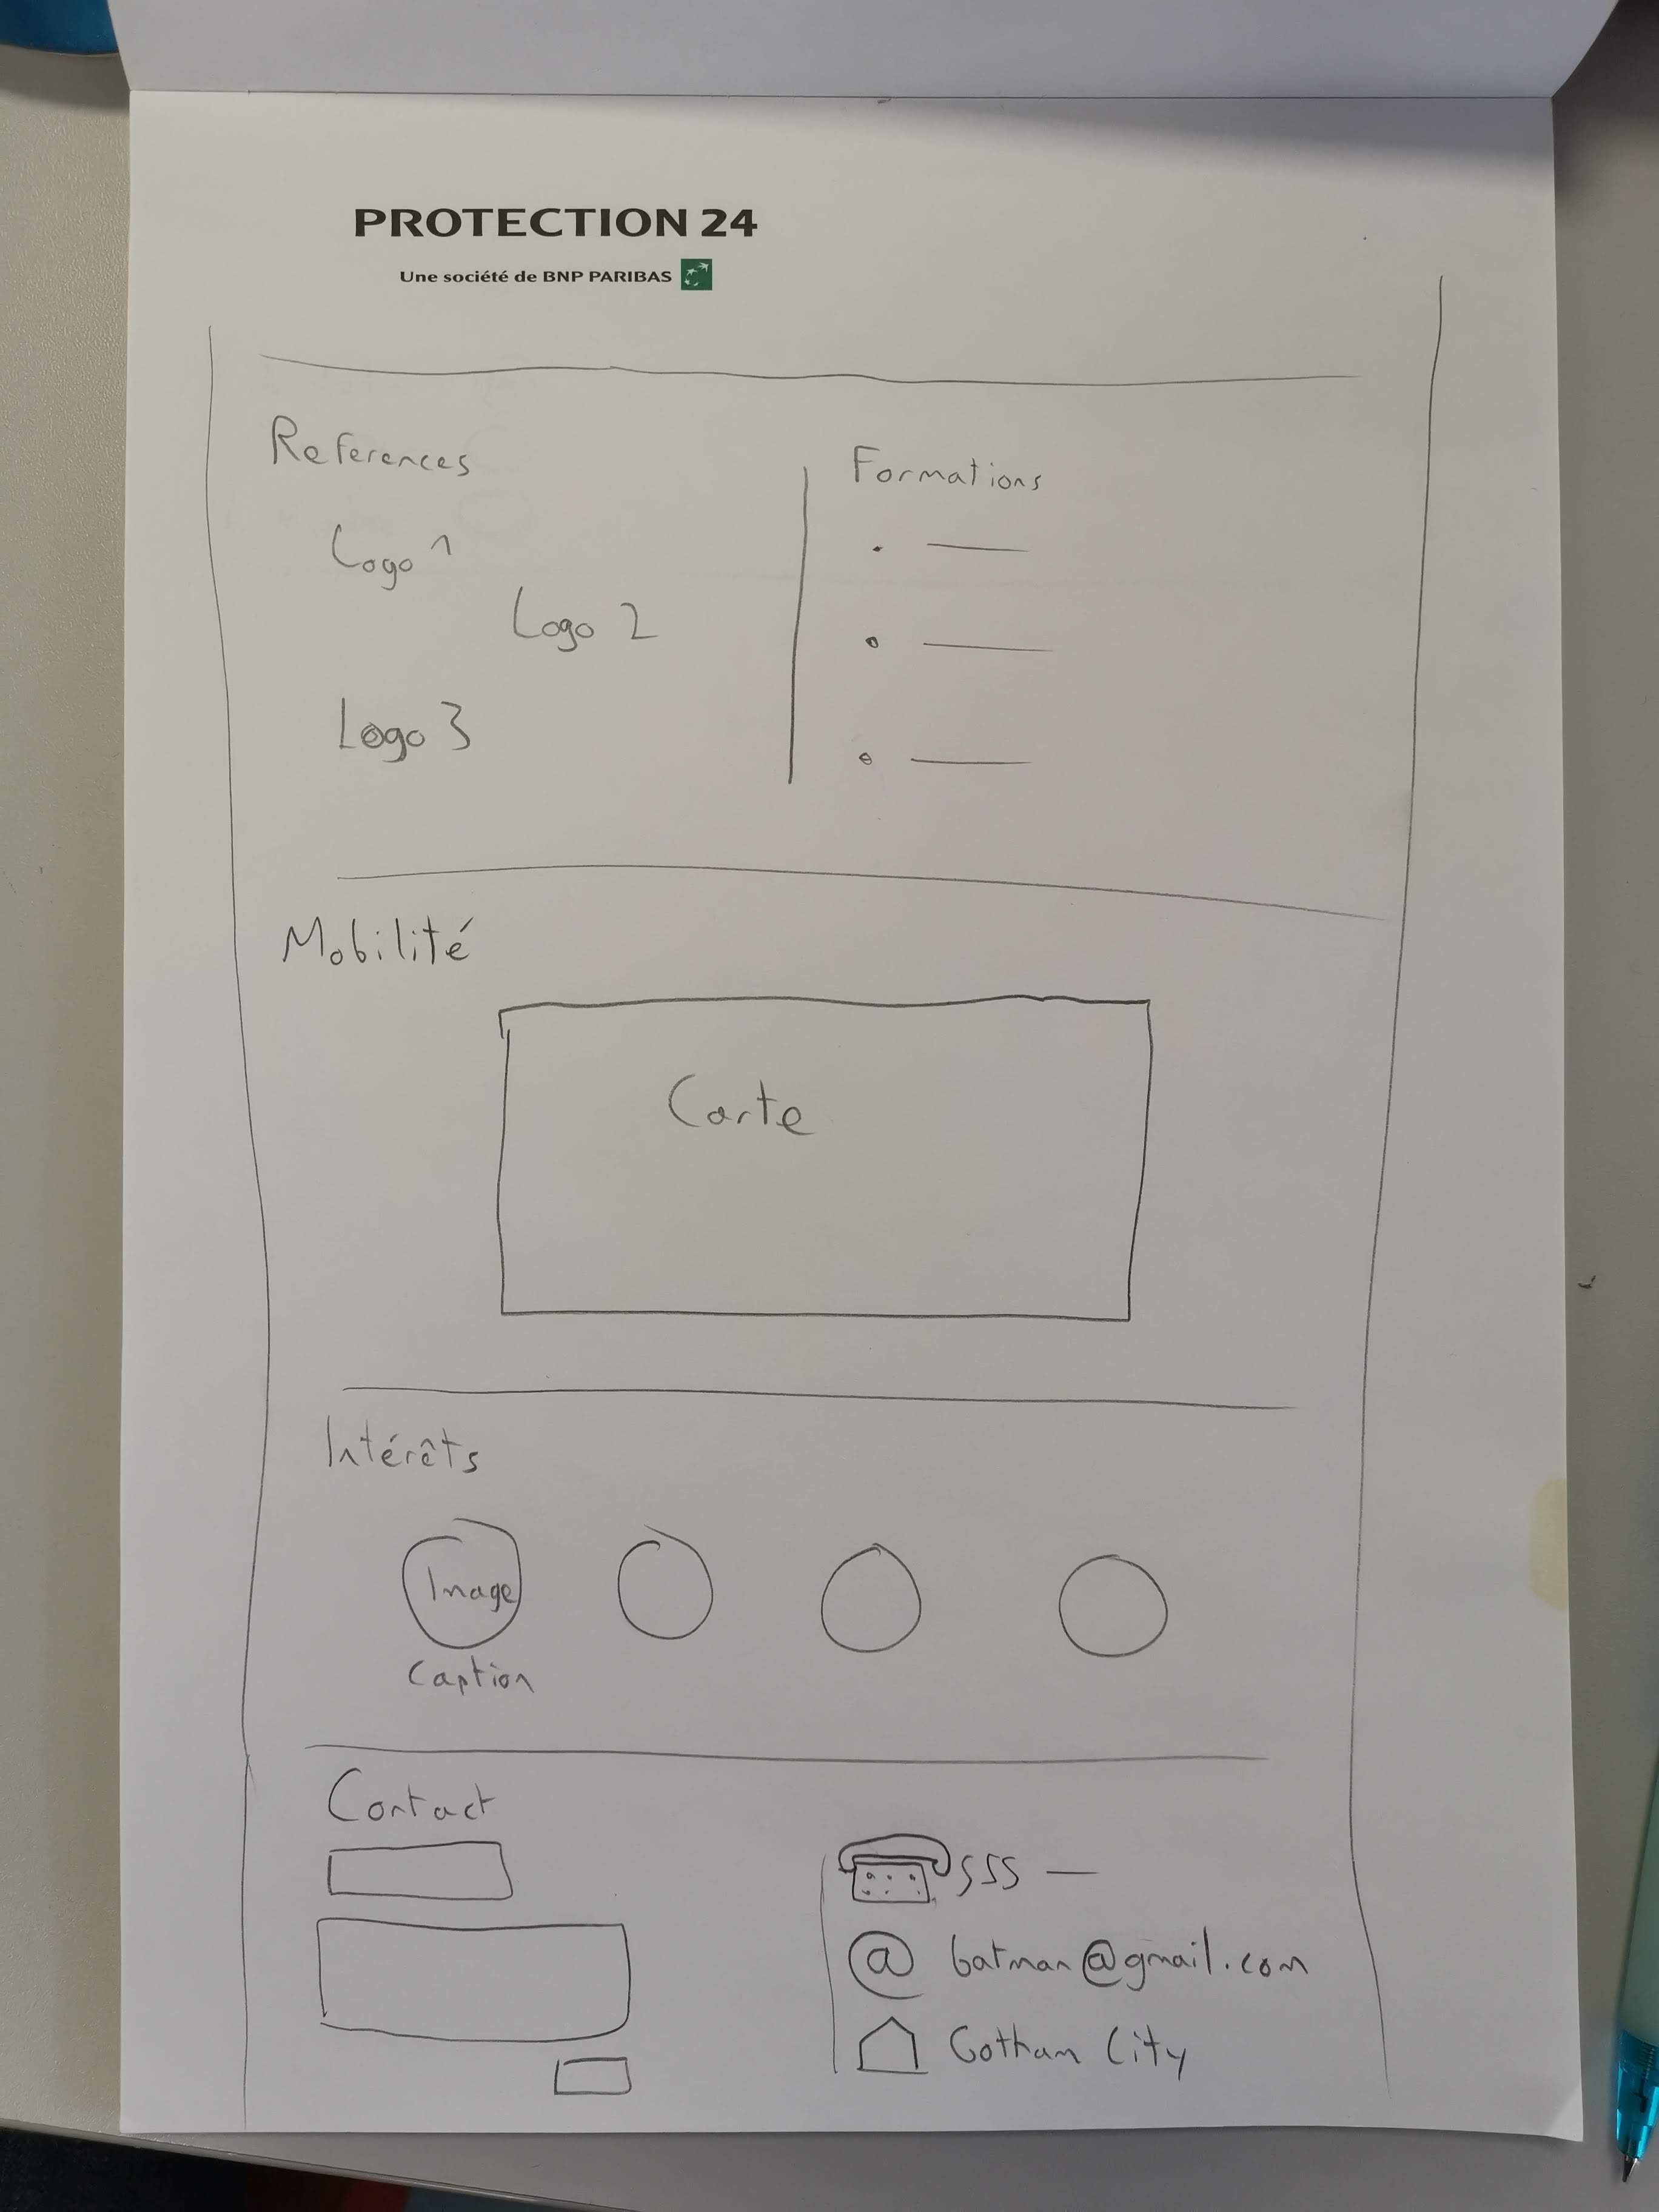 PROTECTION 24
Une société de BNP PARIBAS
References
Logo 1
Logo 2
Logo 3
Formations
Mobilité
Carte
Intérêts
Image
Caption
Contact
555 —
@ batman@gmail.com
Gotham City